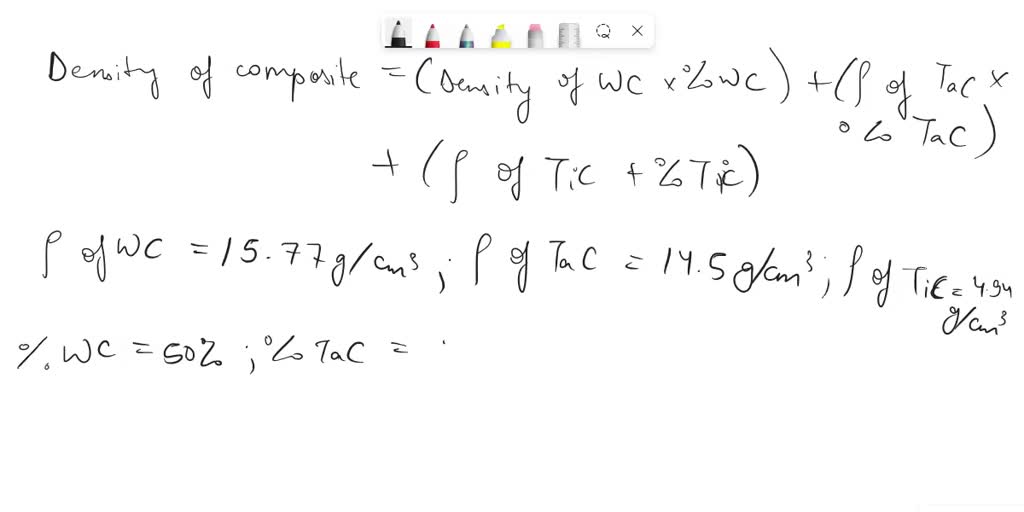 Density of composite = (Density of WC x % WC) + (ρ of TaC x % TaC)
+ (ρ of TiC + % TiC)
ρ of WC = 15.77 g/cm³ ; ρ of TaC = 14.5 g/cm³ ; ρ of TiC = 4.94 g/cm³
% WC = 50% ; % TaC =